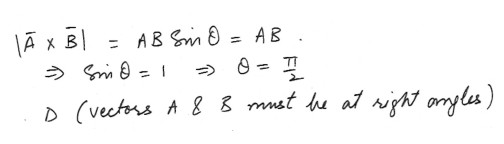 |Ā × B̄| = AB Sin θ = AB .
⇒ Sin θ = 1 ⇒ θ = π/2
D (vectors A & B must be at right angles)